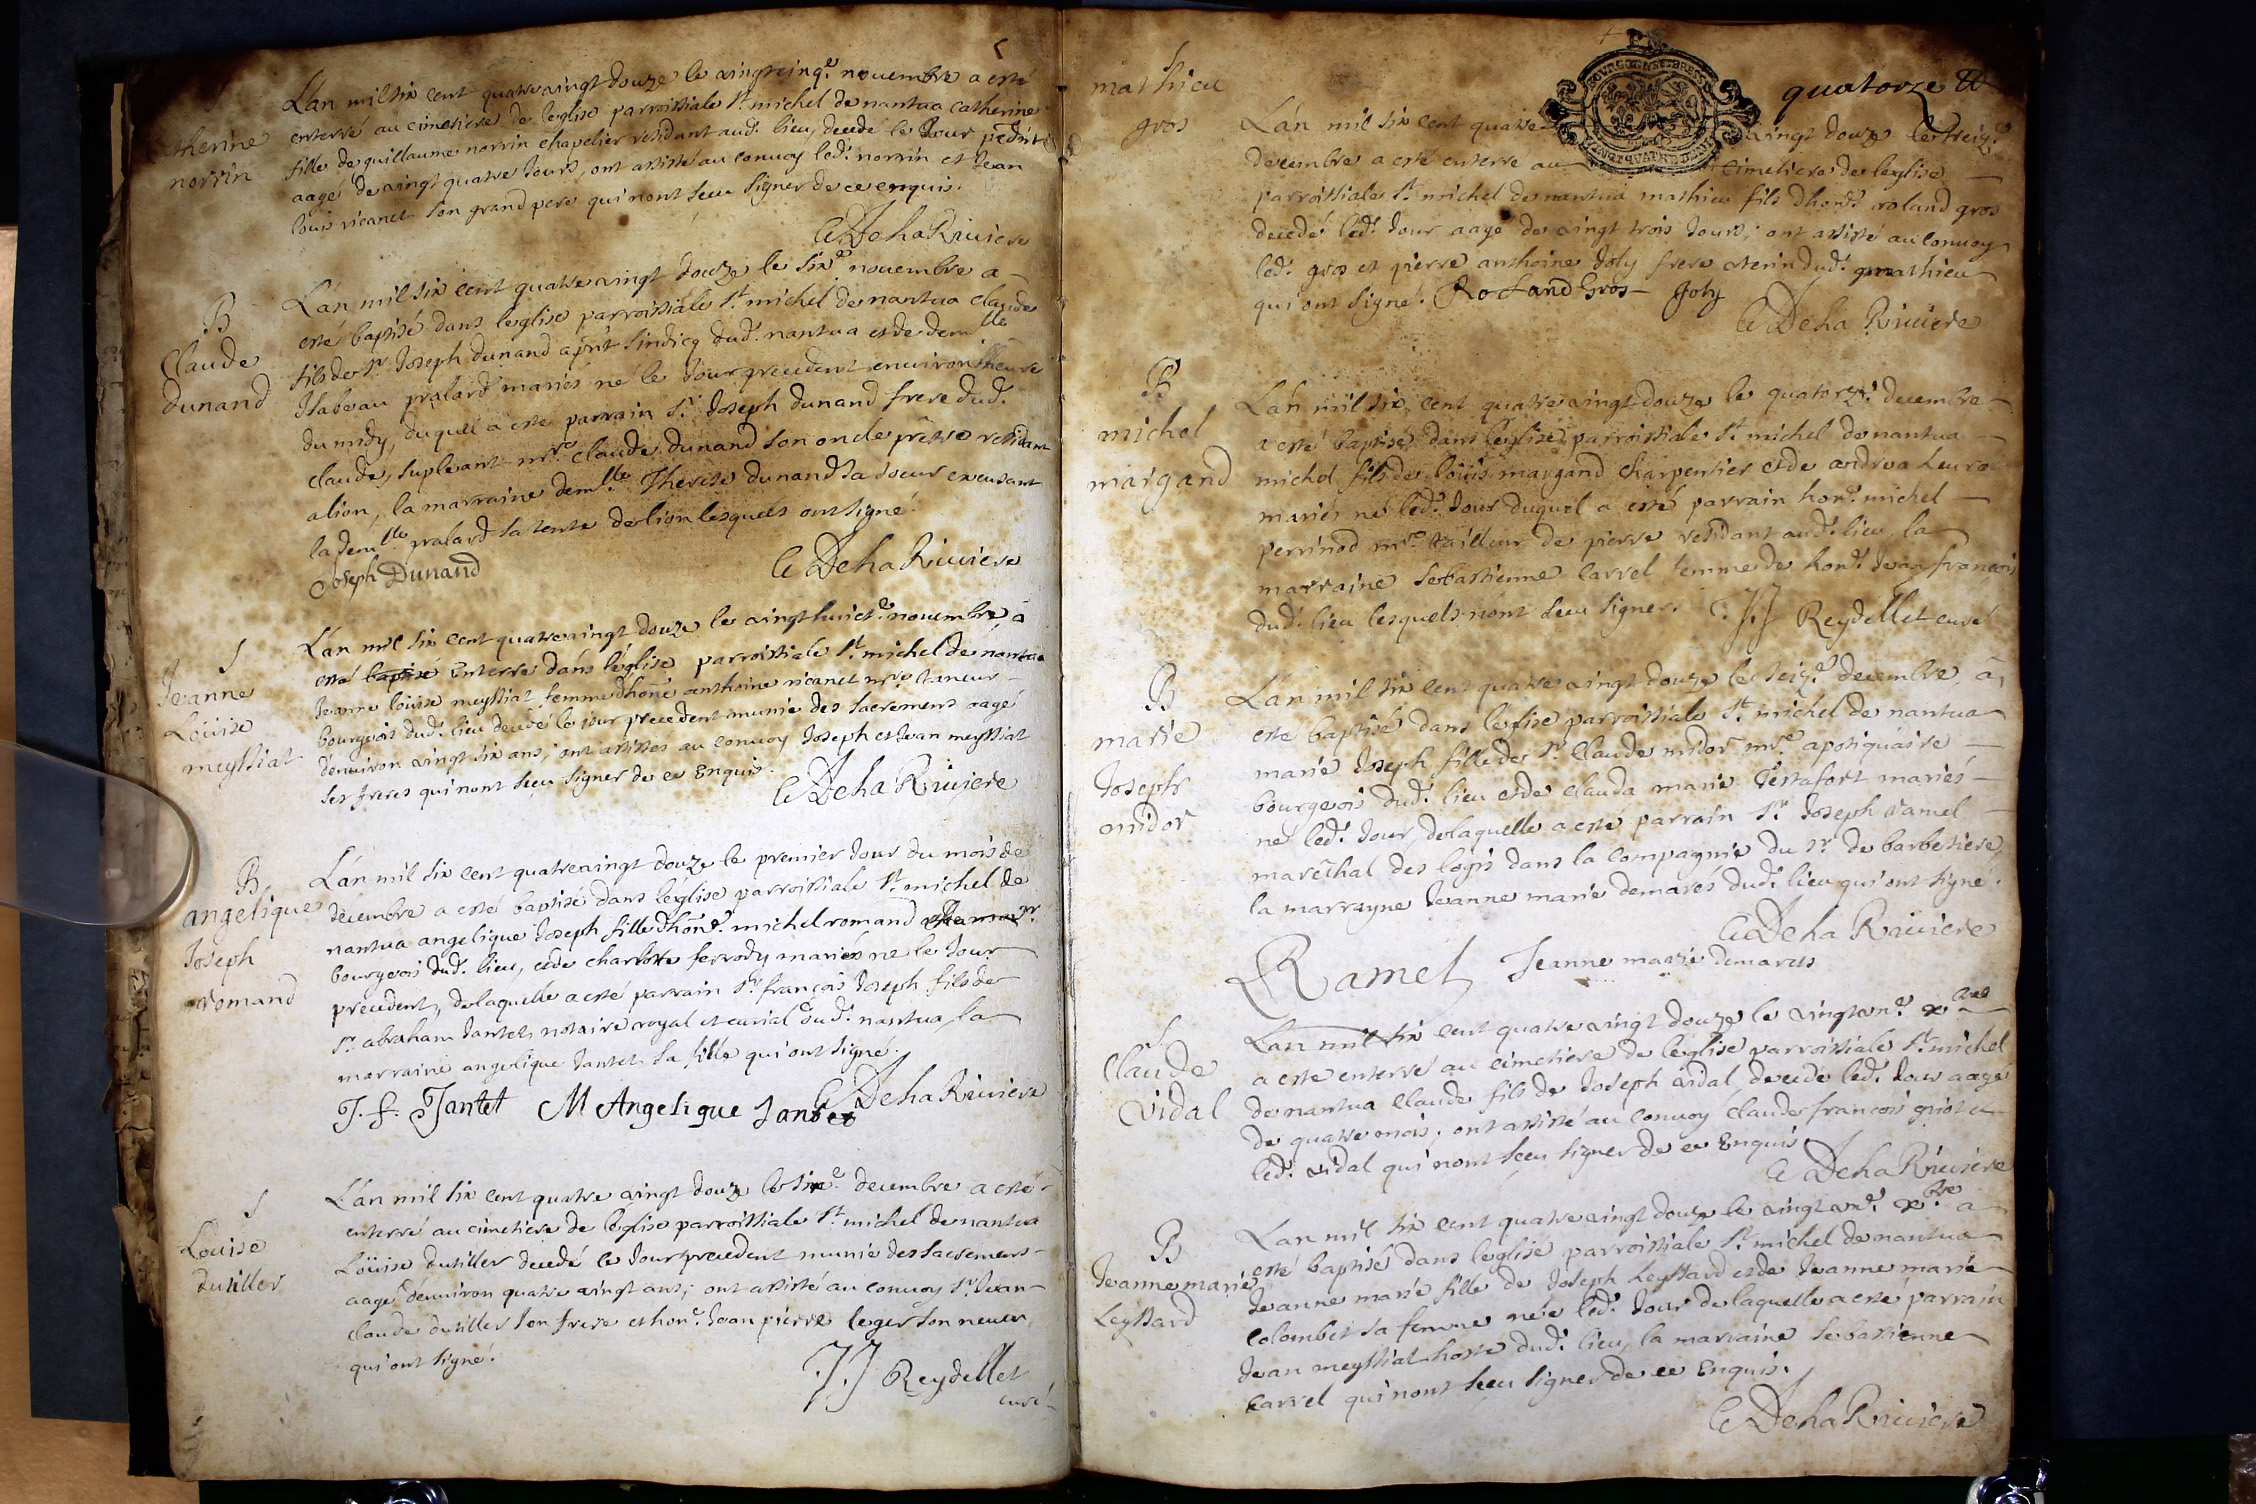 Catherine
norrin
L'an mil six cent quatre vingt douze le vingtcinq.e novembre a esté
enterré au cimetiere de l'eglise parroissiale st michel de nantua catherine
fille de guillaume norrin chapelier residant aud. lieu, decedé le Jour
aagé de vingt quatre Jours, ont assisté au convoy led. norrin et Jean
louis vicanet son grand pere qui n'ont sceu signer de ce enquis.
C Deha Riviere
B
Claude
Dunand
L'an mil six cent quatre vingt douze le six.e novembre a
esté baptisé dans leglise parroissiale st michel de nantua claude
fils de Sr Joseph dunand sindicq dud. nantua et de dem.lle
Isabeau pralard mariés né le Jour precedent environ l'heure
du midy, duquel a esté parrain Sr Joseph Dunand frere dud.
claude, supleant mre claude dunand son oncle pretre residant
a lion, la marraine dem.lle Therese dunand sa soeur excusant
la dem.lle pralard sa tente de lion lesquels ont signé.
Joseph Dunand
C Deha Riviere
S
Jeanne
Loüise
meyssiat
L'an mil six cent quatre vingt douze le vingt huict.e novembre a
esté baptisé Enterré dans léglise parroissiale st michel de nantua
Jeanne loüise meyssiat femme dhone anthoine vicanet mre taneur
bourgeois dud. lieu decedé le jour precedent munie des sacremens aagé
denviron vingt six ans; ont assistes au convoy Joseph et Jean meyssiat
ses freres qui nont sceu signer de ce Enquis.
C Deha Riviere
B
angelique
Joseph
romand
L'an mil six cent quatre vingt douze le premier Jour du mois de
décembre a esté baptisé dans leglise parroissiale st michel de
nantua angelique Joseph fille d'hon.e michel romand
bourgeois dud. lieu, et de charlotte ferrody mariés ne le Jour
precedent, de laquelle a esté parrain Sr françois Joseph fils de
Sr abraham Jantet notaire royal et curial dud. nantua, la
marraine angelique Jantet sa fille qui ont signé.
C Deha Riviere
J. f. Jantet M Angelique Jantet
S
Loüise
dutiller
L'an mil six cent quatre vingt douze le six.e decembre a esté
enterré au cimetiere de léglise parroissiale st michel de nantua
Loüise dutiller decedé le Jour precedent munie des sacremens
aagé denviron quatre vingt ans; ont assisté au convoy Sr Jean
claude dutiller son frere et hon.e Jean pierre leger son neveu
qui ont signé.
JJ Reydellet
curé
quatorze
mathieu
gros
L'an mil six cent quatre vingt douze le treiz.e
decembre a esté enterré au cimetiere de leglise
parroissiale st michel de nantua mathieu fils d'hon.e roland gros
decedé led. Jour aagé de vingt trois Jours; ont assisté au convoy
led. gros et pierre anthoine Joly frere uterin dud. mathieu
qui ont signé. Rolland Gros Joly
C Deha Riviere
B
michel
maigand
L'an mil six cent quatre vingt douze le quatorz.e decembre
a esté baptisé dans leglise parroissiale st michel de nantua
michel fils de louis margand charpentier et de andrea
mariés né led. Jour duquel a esté parrain hon.e michel
perrinod mre tailleur de pierre residant aud. lieu, la
marraine Sebastienne Carrel femme de hon.e Jean françois
dud. lieu lesquels n'ont sceu signer.
JJ Reydellet curé
B
marie
Joseph
midor
L'an mil six cent quatre vingt douze le seiz.e decembre, a
esté baptisé dans leglise parroissiale st michel de nantua
marie Joseph fille de Sr Claude midor mre apotiquaire
bourgeois dud. lieu et de clauda marie Testafort mariés
né led. Jour, de laquelle a esté parrain Sr Joseph ramel
maréchal des logis dans la compagnie du Sr de barbesiere,
la marrayne Jeanne marie demarés dud. lieu qui ont signé.
C Deha Riviere
Ramel Jeanne marie demares
S
Claude
Vidal
L'an mil six cent quatre vingt douze le vingt un.e x.bre
a esté enterré au cimetiere de leglise parroissiale st michel
de nantua Claude fils de Joseph vidal, decedé led. Jour aagé
de quatre mois; ont assisté au convoy claude françois
led. vidal qui n'ont sceu signer de ce Enquis
C Deha Riviere
B
Jeanne marie
Leyssard
L'an mil six cent quatre vingt douze le vingt un.e x.bre a
esté baptisés dans leglise parroissiale st michel de nantua
Jeanne marie fille de Joseph Leyssard et de Jeanne marie
colombet sa femme née led. Jour de laquelle a esté parrain
Jean meyssiat hoste dud. lieu, la marraine Sebastienne
Carrel qui n'ont sceu signer de ce Enquis.
C Deha Riviere